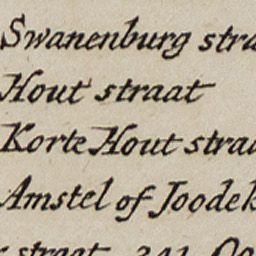 Swanenburg stra
Hout straat
Korte Hout straa
Amstel of Joodek
straat 241 Oo